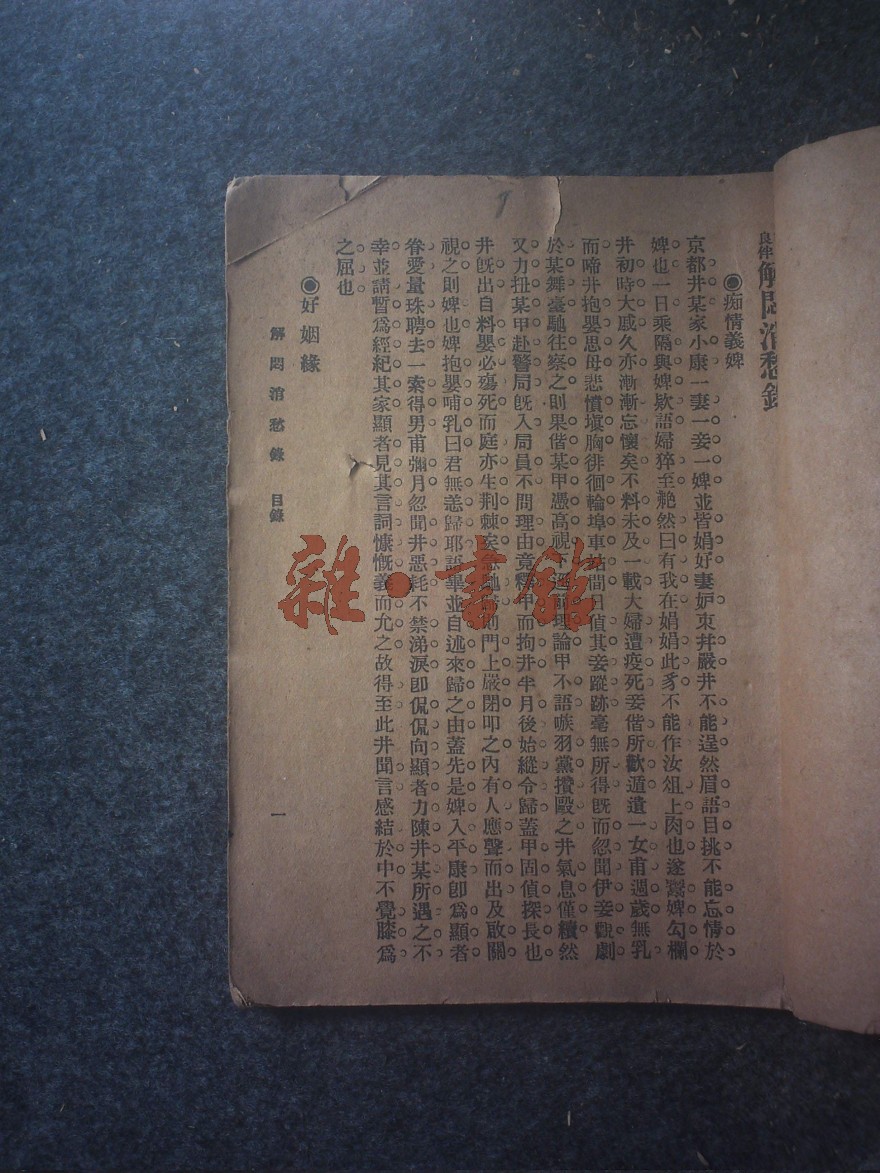 良伴解悶消愁錄
◉痴情義婢
京都井某家小康一妻一妾一婢並皆娟好妻妒束井嚴井不能逞然眉語目挑不能忘情於
婢也一日乘隔與婢欵語婦猝至艴然曰有我在娟娟此豸不能作汝俎上肉也遂鬻婢勾欄
井初時大戚久亦漸漸忘懷矣不料未及一載大婦遭疫死妾偕所歡遁遺一女甫週歲無乳
而啼井抱嬰思母悲憤塡胸徘徊輪埠車間日偵其妾蹤跡毫無所得旣而忽聞伊妾觀劇
於某舞臺馳往察之則果偕某甲憑高視理論甲不語嗾羽黨攢毆之井氣息僅續然
又力扭某甲赴警局旣入局員不問理由竟釋甲而拘井半月後始縱令歸蓋甲固偵探長也
井旣出自料嬰必殤死而庭亦生荆棘矣門上嚴閉叩之內有人應聲而出及啟關
視之則婢也婢抱嬰哺乳曰君無恙歸耶語畢並自述來歸之由蓋先是婢入平康卽爲顯者
眷愛量珠聘去一索得男甫彌月忽聞井惡耗不禁涕淚卽侃侃向顯者力陳井某所遇之不
幸並請暫爲經紀其家顯者見其言詞慷慨義而允之故得至此井聞言感結於中不覺膝爲
之屈也
◉好姻緣
解悶消愁錄 目錄
一
雜·書館